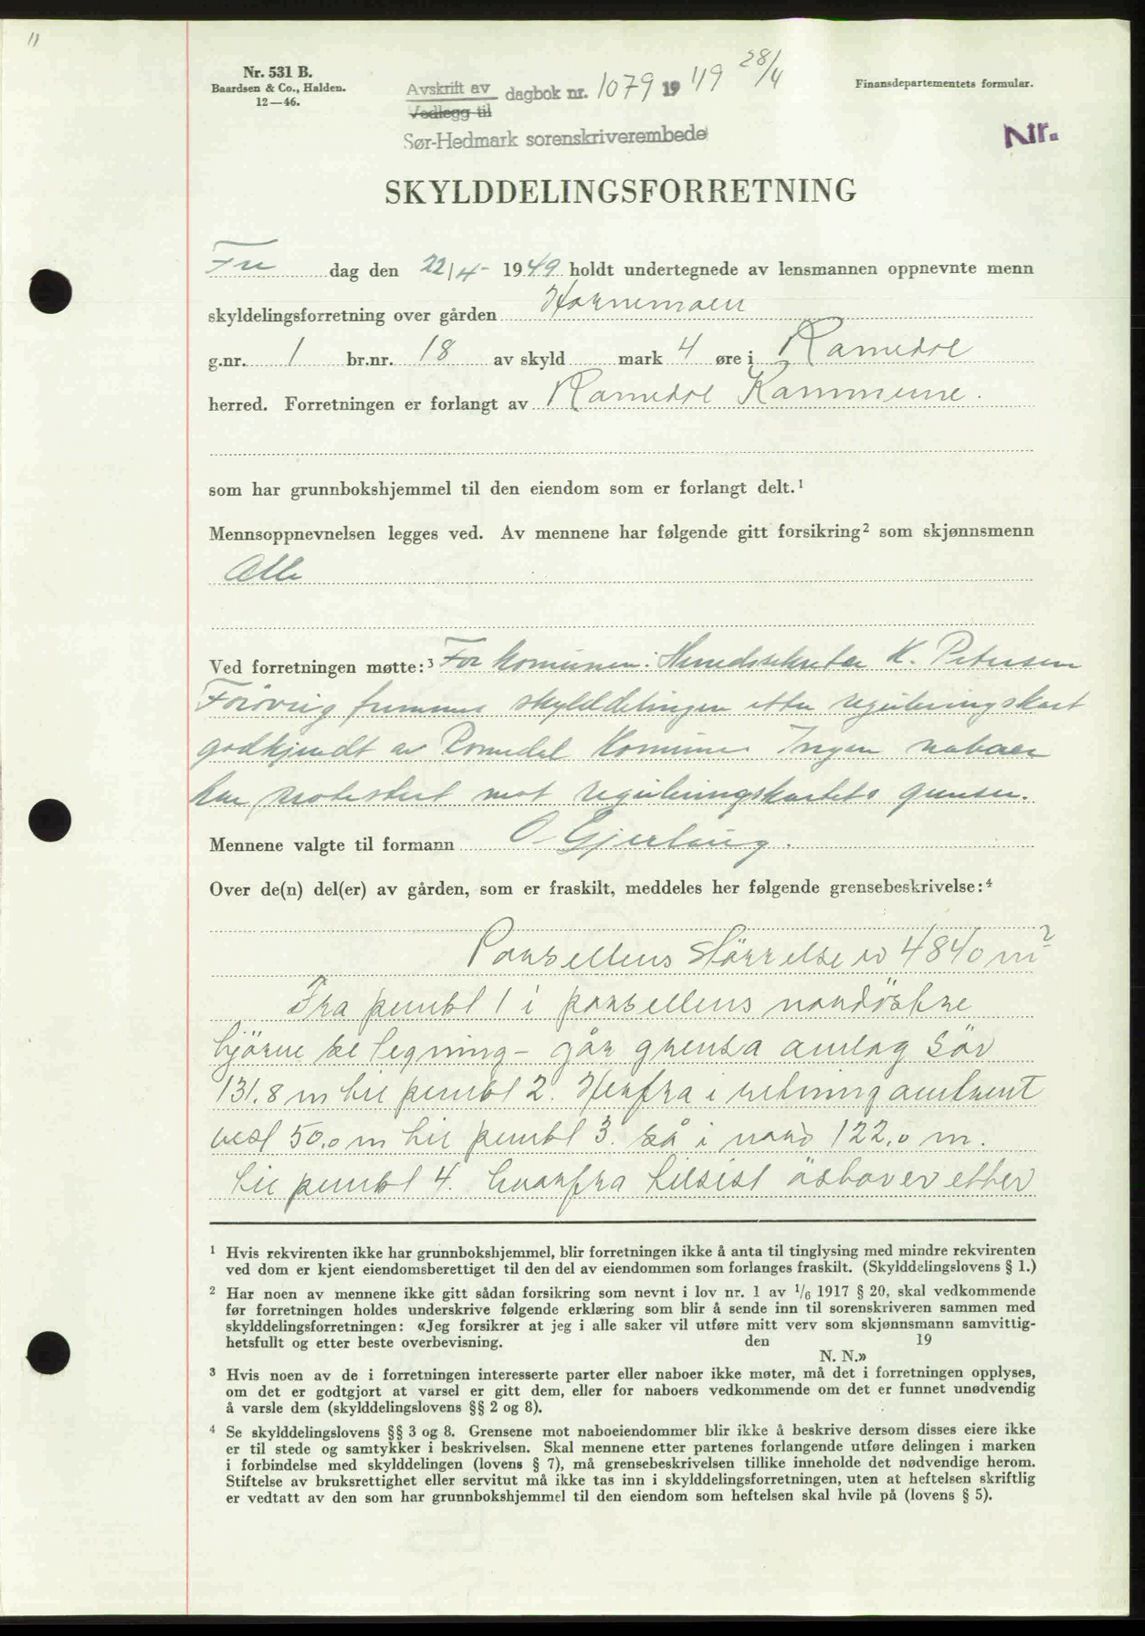 11
Nr. 531 B.
Baardsen & Co., Halden.
12—46.
Avskrift av
Vedlegg til
dagbok nr. 1079 1949 28/4
Sør-Hedmark sorenskriverembede
Finansdepartementets formular.
Nr.
SKYLDDELINGSFORRETNING
Fre dag den 22/4- 1949 holdt undertegnede av lensmannen oppnevnte menn
skyldelingsforretning over gården Hornemoen
g.nr. 1 br.nr. 18 av skyld mark 4 øre i Romedal
herred. Forretningen er forlangt av Romedal Kommune.
som har grunnbokshjemmel til den eiendom som er forlangt delt.¹
Mennsoppnevnelsen legges ved. Av mennene har følgende gitt forsikring² som skjønnsmenn
Alle
Ved forretningen møtte:³ For komunen: Herredssekretær K. Petersen
Forøvrig fremmes skylddelingen etter reguleringskart
godkjendt av Romedal Komune. Ingen naboer
har protestert mot reguleringskartets grenser.
Mennene valgte til formann O. Gjerluug.
Over de(n) del(er) av gården, som er fraskilt, meddeles her følgende grensebeskrivelse:⁴
Parsellens störrelse er 4840 m²
Fra punkt 1 i parsellens nordöstre
hjörne se tegning - går grensa amlag sör
131.8 m til punkt 2. Herfra i retning amtrent
vest 50,0 m til punkt 3. så i nord 122,0 m.
til punkt 4. hvorfra tilsist östover etter
¹ Hvis rekvirenten ikke har grunnbokshjemmel, blir forretningen ikke å anta til tinglysing med mindre rekvirenten
ved dom er kjent eiendomsberettiget til den del av eiendommen som forlanges fraskilt. (Skylddelingslovens § 1.)
² Har noen av mennene ikke gitt sådan forsikring som nevnt i lov nr. 1 av 1/6 1917 § 20, skal vedkommende
før forretningen holdes underskrive følgende erklæring som blir å sende inn til sorenskriveren sammen med
skylddelingsforretningen: «Jeg forsikrer at jeg i alle saker vil utføre mitt verv som skjønnsmann samvittig-
hetsfullt og etter beste overbevisning. den 19
N. N.»
³ Hvis noen av de i forretningen interesserte parter eller naboer ikke møter, må det i forretningen opplyses,
om det er godtgjort at varsel er gitt dem, eller for naboers vedkommende om det er funnet unødvendig
å varsle dem (skylddelingslovens §§ 2 og 8).
⁴ Se skylddelingslovens §§ 3 og 8. Grensene mot naboeiendommer blir ikke å beskrive dersom disses eiere ikke
er til stede og samtykker i beskrivelsen. Skal mennene etter partenes forlangende utføre delingen i marken
i forbindelse med skylddelingen (lovens § 7), må grensebeskrivelsen tillike inneholde det nødvendige herom.
Stiftelse av bruksrettighet eller servitut må ikke tas inn i skylddelingsforretningen, uten at heftelsen skriftlig
er vedtatt av den som har grunnbokshjemmel til den eiendom som heftelsen skal hvile på (lovens § 5).